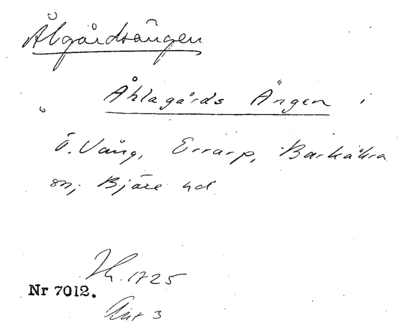 Ålgårdsängen
Åhlagårds Ängen i
Ö. Vång, Errarp, Barkåkra
sn, Bjäre hd
Nr 7012.